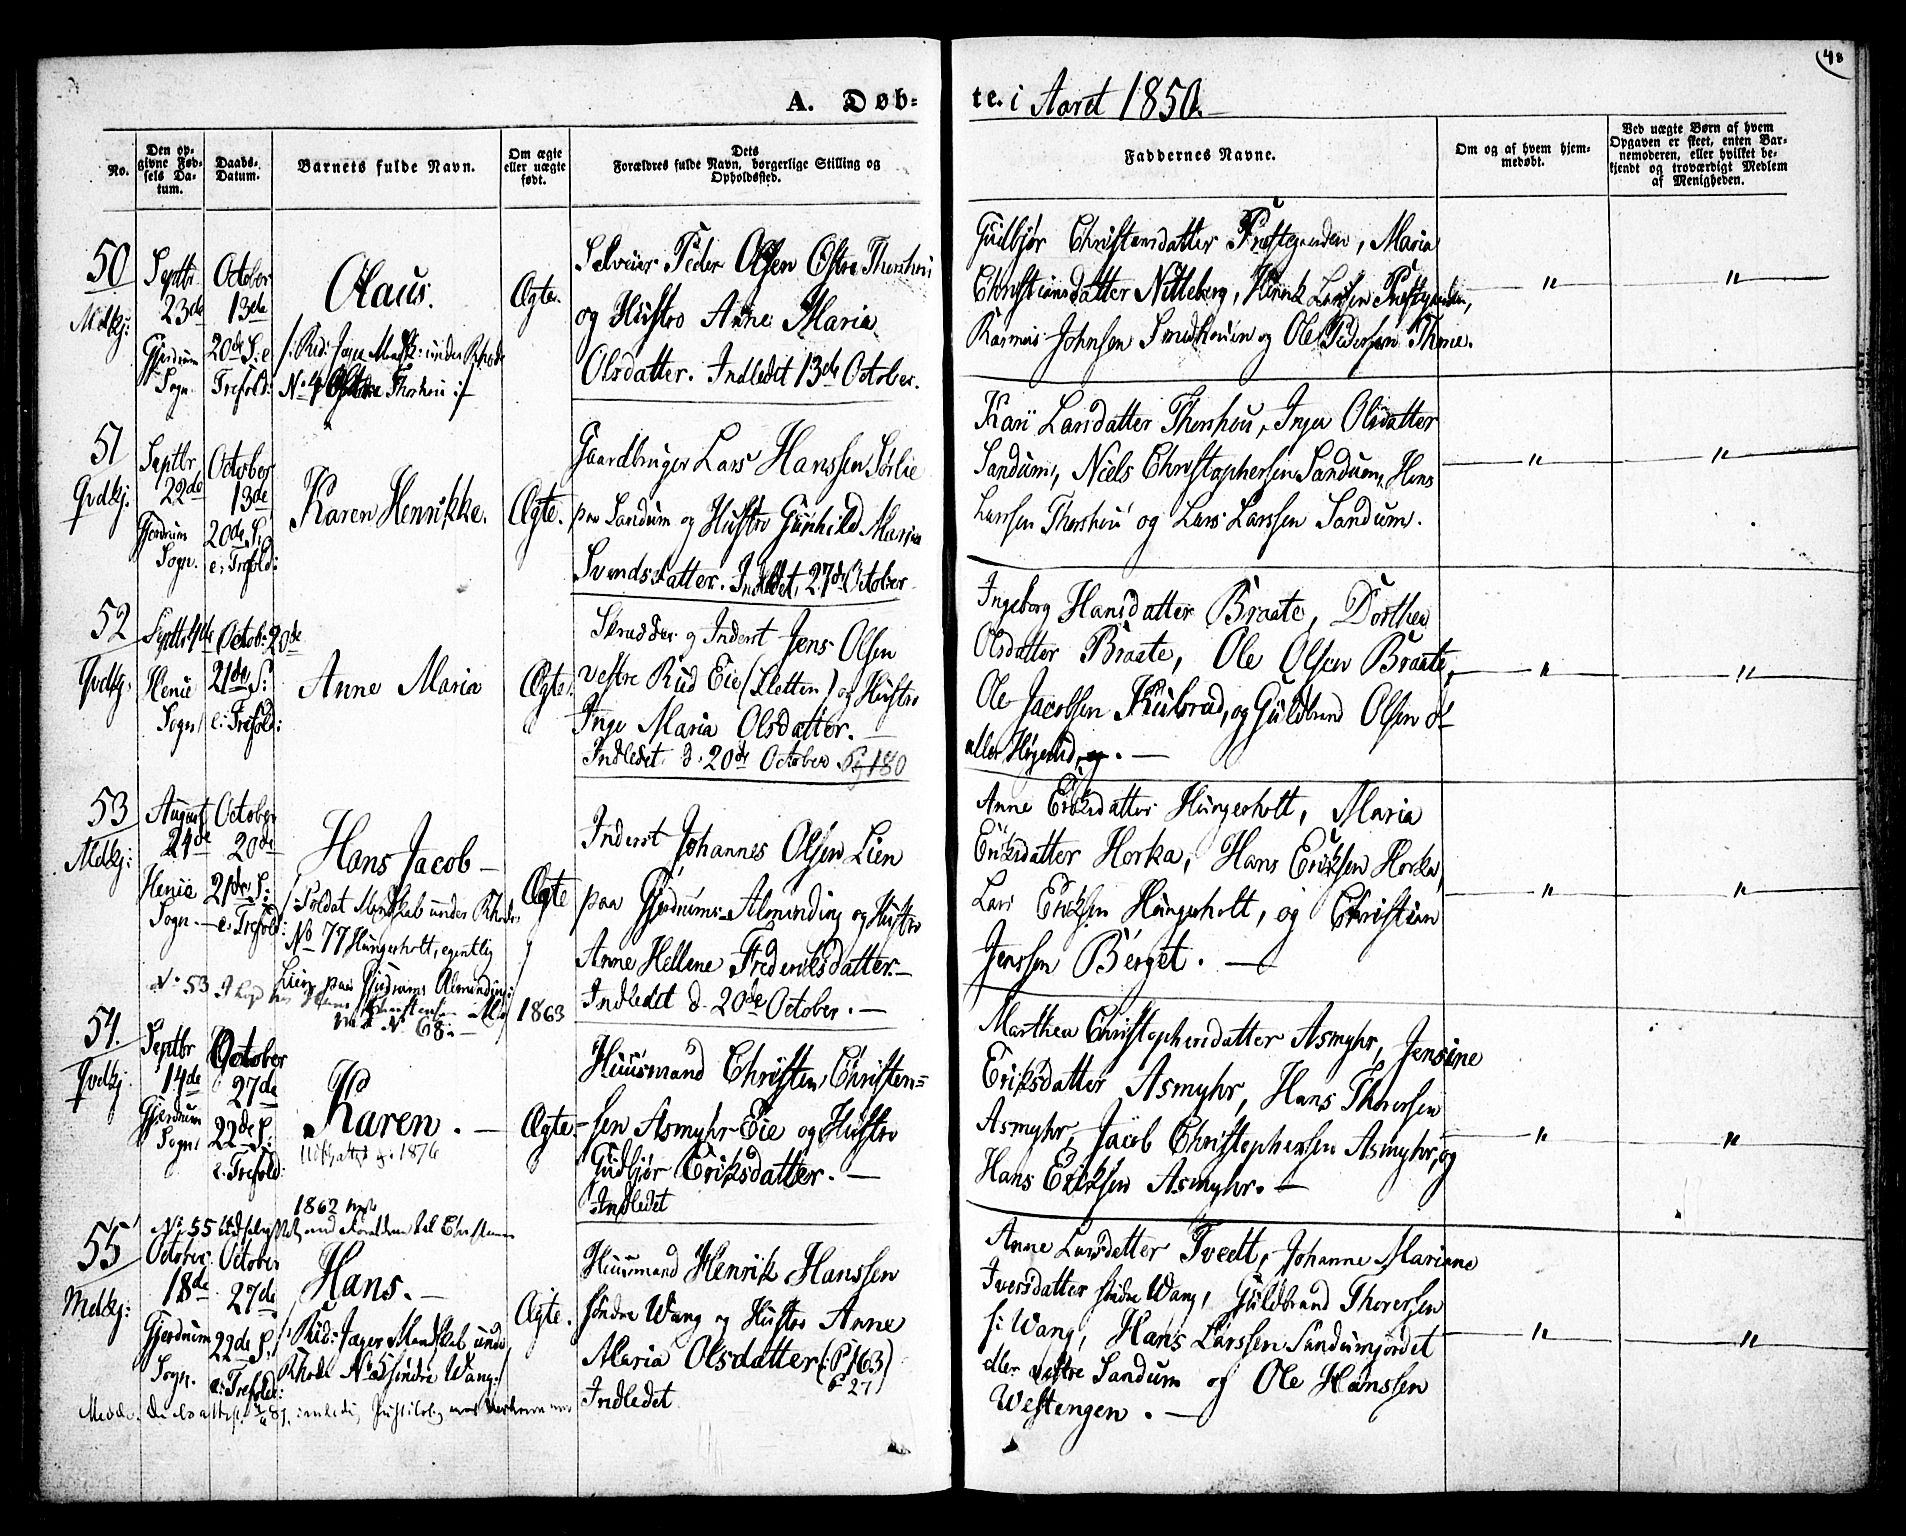 48
A. Døb-
te. i Aaret 1850.
No.
Den op-
givne Fød-
sels Da-
tum.
Daabs-
Datum.
Barnets fulde Navn.
Om ægte
eller uægte
født.
Dets
Forældres fulde Navn, borgerlige Stilling og
Opholdssted.
Faddernes Navne.
Om og af hvem hjem-
medøbt.
Ved uægte Børn af hvem
Opgaven er skeet, enten Bar-
nemoderen, eller hvilket be-
kjendt og troværdigt Medlem
af Menigheden.
50
Mdkj:
Septbr
23de
Gjerdrum
Sogn
October
13de
20de S: e
Trefold:
Olaus.
No 4 Østre Thorshou :/
Ægte.
Selveier Peder Olsen Østre Thorshou
og Hustro Anne Maria
Olsdatter. Indledet 13de October.
Gudbjør Christensdatter Præstegaarden, Maria
Christiansdatter Nitteberg, Henrik Larsen Præstegaarden,
Rasmus Johnsen Smedhouen og Ole Pedersen
51
Qvdkj:
Septbr
22de
Gjerdrum
Sogn.
October
13de
20de S:
e: Trefold:
Karen Henrikke.
Ægte.
Gaardbruger Lars Hanssen Sørlie
paa Sandum og Hustro Gunhild Maria
Svendsdatter. Indledet, 27de October
Kari Larsdatter Thorshou, Inger Olsdatter
Sandum, Niels Christophersen Sandum, Hans
Larssen Thorshou og Lars Larssen Sandum.
52
Qvdkj:
Septbr
Henie
Sogn
Octob: 20de
21de S:
e: Trefold:
Anne Maria
Ægte.
Skrædder og Inderst Jens Olsen
vestre Rud Eie (Sletten) og Hustro
Inge Maria Olsdatter. —
Indledet d. 20de October Pg 180
Ingeborg Hansdatter Braate, Dorthea
Olsdatter Braate, Ole Olsen Braate,
Ole Jacobsen Kulsrud, og Guldbrand Olsen
53
Mdkj:
August
24de
Henie
Sogn —
October
20de
21de S:
e: Trefold:
Hans Jacob —
/: Soldat Mandskab under Rhode
No 77 Hungerholt, egentlig
Lien paa Gjerdrums Almending:/
No 53
1863
No 68. —
Ægte
Inderst Johannes Olsen Lien
paa Gjerdrums Almending og Hustro
Anne Hellene Frederiksdatter —
Indledet d. 20de October. —
Anne Eriksdatter Hungerholt, Maria
Eriksdatter Horka, Hans Eriksen Horka,
Lars Eriks: Hungerholt, og Christian
Jenssen Berget. —
54.
Qvdkj
Septbr
14de
Gjerdrum
Sogn
October
27de
22de S:
e: Trefold:
Karen. —
1876
Ægte.
Huusmand Christen Christen-
sen Asmyhr Eie og Hustro
Gudbjør Eriksdatter. —
Indledet
Marthea Christophersdatter Asmyhr, Jensine
Eriksdatter Asmyhr, Hans Thoresen
Asmyhr, Jacob Christophersen Asmyhr, og
Hans Eriksen Asmyhr. —
1862
No 55
55
Mdkj:
October
18de
Gjerdrum
Sogn.
October
27de
22de S:
e: Trefold:
Hans. —
/: Rid: Jager Mandskab under
Rhode No 25 søndre Wang:/
Ægte.
Huusmand Henrik Hanssen
søndre Wang og Hustro Anne
Maria Olsdatter (: P 163)
Indledet
Anne Larsdatter Tveedt, Johanne Mariane
Iversdatter søndre Wang, Guldbrand Thoresen
s: Wang, Hans Larssen Sandumjordet
eller vestre Sandum og Ole Hanssen
Westengen. —